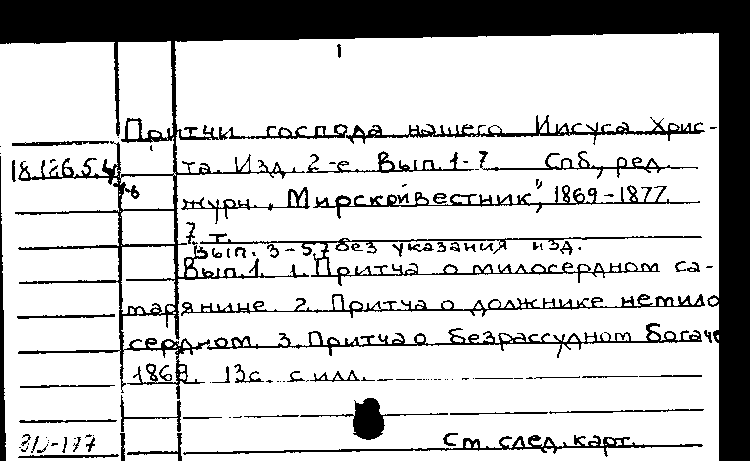 1
Притчи господа нашего Иисуса Хрис-
18.126.5.4/1-6 та. Изд. 2-е. Вып. 1-7. Спб., ред.
журн. "Мирской вестник", 1869-1877.
7 т.
Вып. 3-5,7 без указания изд.
Вып.1. 1. Притча о милосердном са-
марянине. 2. Притча о должнике немило
сердном. 3. Притча о безрассудном богаче
1869. 13с. с илл.
См. след. карт.